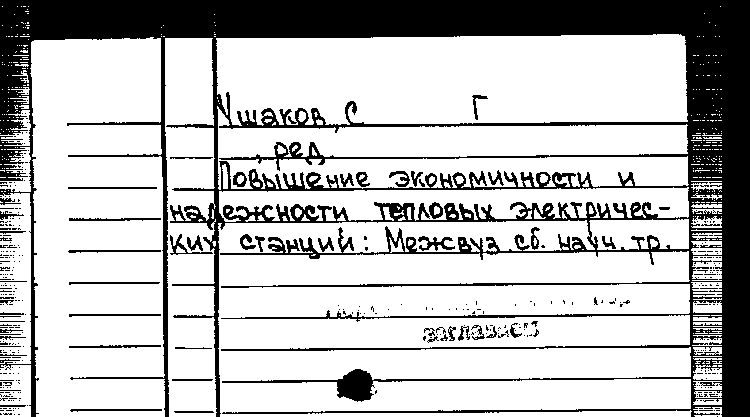 Ушаков, С Г
, ред.
Повышение экономичности и
надежности тепловых электричес-
ких станций: Межвуз. сб. науч. тр.
заглавием